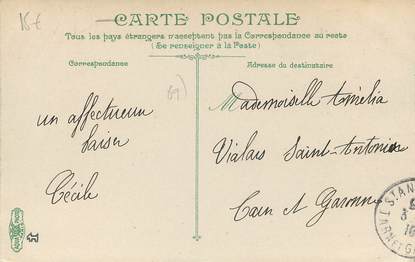 15€
CARTE POSTALE
Tous les pays étrangers n'acceptent pas la Correspondance au recto
(Se renseigner à la Poste)
Correspondance
Adresse du destinataire
un affectueux
baiser
Cécile
Mademoiselle Amélia
Vialars Saint-Antonin
Tarn et Garonne
ST ANT
TARN ET G